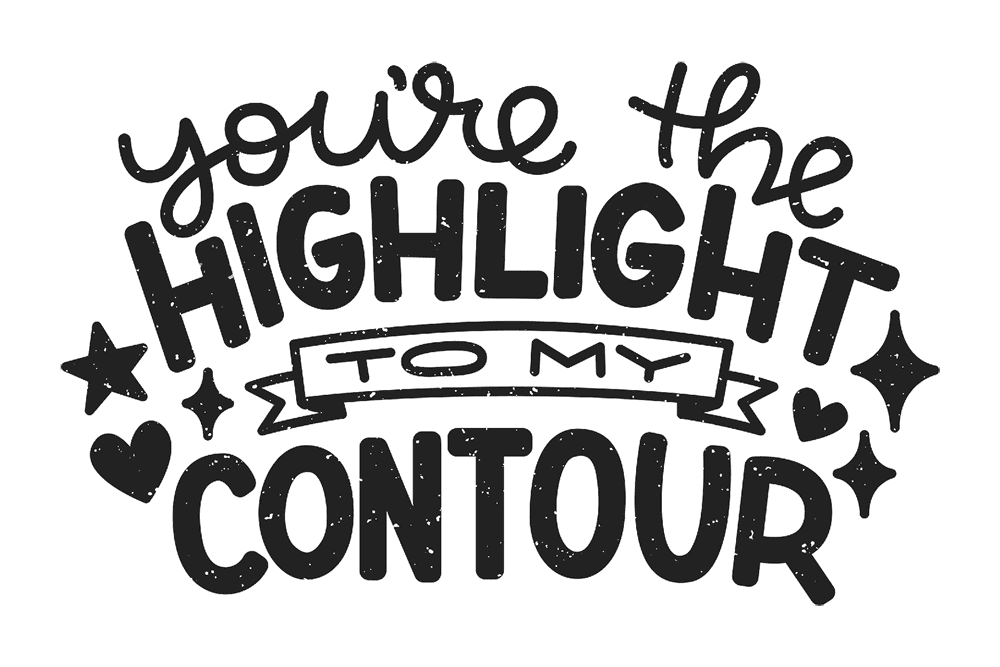 you're the
HIGHLIGHT
TO MY
CONTOUR